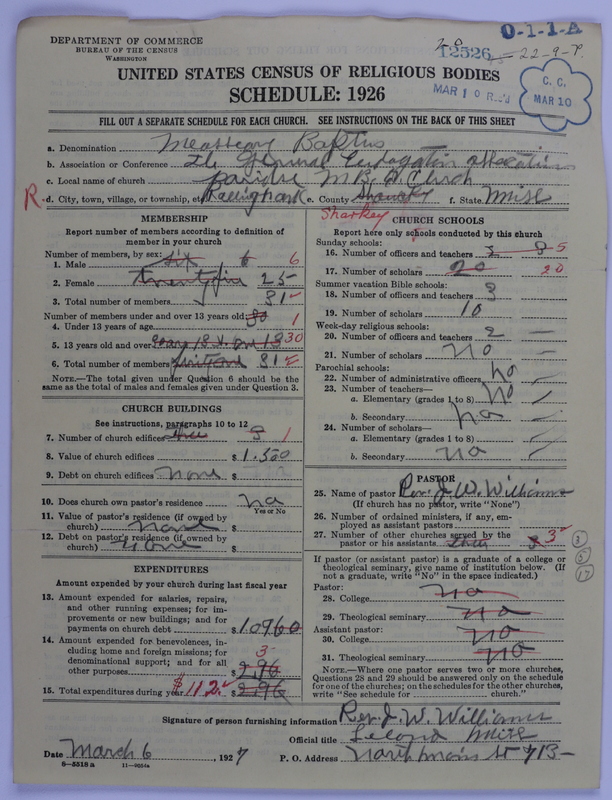 O-1-1-A
DEPARTMENT OF COMMERCE
BUREAU OF THE CENSUS
WASHINGTON
12526 22-9-7.
MAR 10 REC'D
C. C.
MAR 10
UNITED STATES CENSUS OF RELIGIOUS BODIES
SCHEDULE: 1926
FILL OUT A SEPARATE SCHEDULE FOR EACH CHURCH. SEE INSTRUCTIONS ON THE BACK OF THIS SHEET
a. Denomination
b. Association or Conference General
c. Local name of church M B Church
R d. City, town, village, or township, etc e. County Sharkey f. State Miss
MEMBERSHIP
Report number of members according to definition of member in your church
Number of members, by sex:
1. Male six 6 6
2. Female 25
3. Total number of members 31
Number of members under and over 13 years old:
4. Under 13 years of age 1
5. 13 years old and over 30
6. Total number of members 31
NOTE.—The total given under Question 6 should be the same as the total of males and females given under Question 3.
CHURCH BUILDINGS
See instructions, paragraphs 10 to 12
7. Number of church edifices 1
8. Value of church edifices $ 1.500
9. Debt on church edifices none $
10. Does church own pastor's residence no
Yes or No
11. Value of pastor's residence (if owned by church) none $
12. Debt on pastor's residence (if owned by church) none $
EXPENDITURES
Amount expended by your church during last fiscal year
13. Amount expended for salaries, repairs, and other running expenses; for improvements or new buildings; and for payments on church debt $ 10960
14. Amount expended for benevolences, including home and foreign missions; for denominational support; and for all other purposes 3 $ 2.96
15. Total expenditures during year $112. $ 2.96
CHURCH SCHOOLS
Report here only schools conducted by this church
Sunday schools:
16. Number of officers and teachers 5
17. Number of scholars 20 20
Summer vacation Bible schools:
18. Number of officers and teachers 3
19. Number of scholars 10
Week-day religious schools:
20. Number of officers and teachers 2 —
21. Number of scholars no —
Parochial schools:
22. Number of administrative officers no
23. Number of teachers—
a. Elementary (grades 1 to 8) no
b. Secondary no
24. Number of scholars—
a. Elementary (grades 1 to 8)
b. Secondary no
PASTOR
25. Name of pastor Rev. J. W. Williams
(If church has no pastor, write "None")
26. Number of ordained ministers, if any, employed as assistant pastors
27. Number of other churches served by the pastor or his assistants 3
If pastor (or assistant pastor) is a graduate of a college or theological seminary, give name of institution below. (If not a graduate, write "No" in the space indicated.)
Pastor:
28. College no
29. Theological seminary no
Assistant pastor:
30. College no
31. Theological seminary no
NOTE.—Where one pastor serves two or more churches, Questions 28 and 29 should be answered only on the schedule for one of the churches; on the schedules for the other churches, write "See schedule for church."
Signature of person furnishing information Rev. J. W. Williams
Official title
Date March 6, 1927 P. O. Address 713
6—5518 a 11—9554a